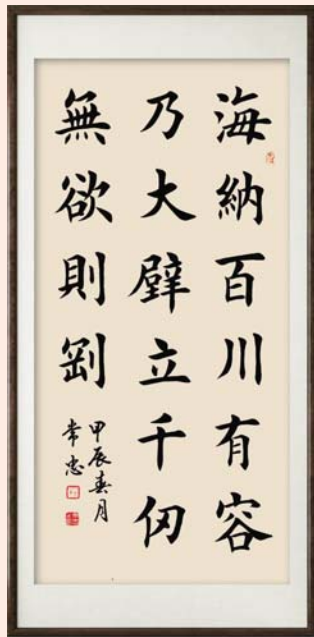 海納百川有容
乃大壁立千仞
無欲則剛
甲辰春月
常忠